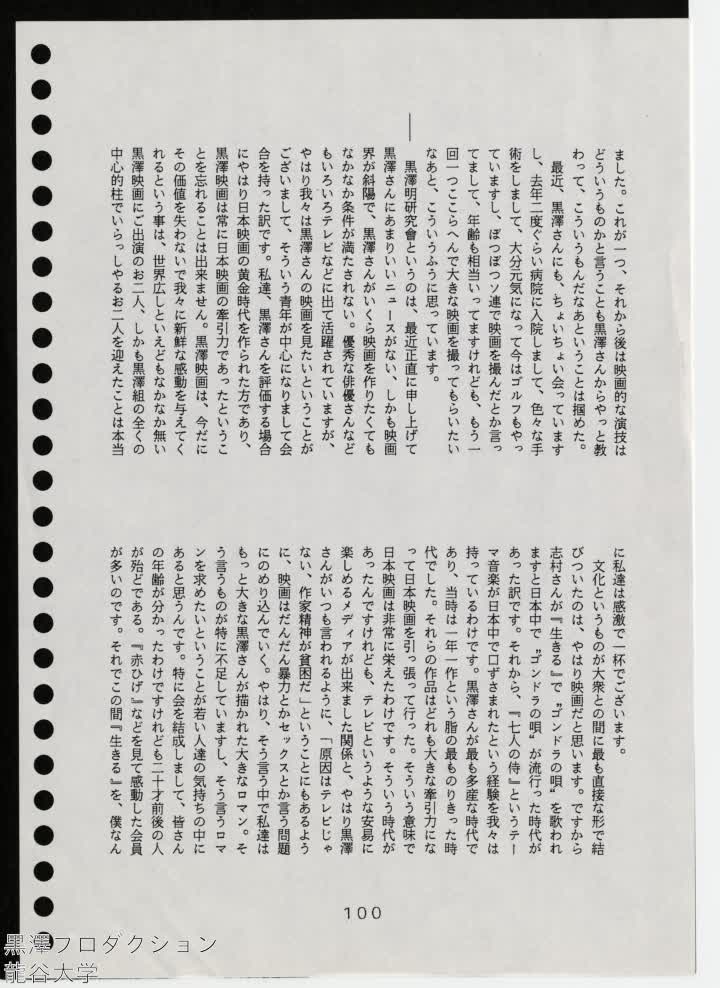 ました。これが一つ、それから後は映画的な演技は
どういうものかと言うことも黒澤さんからやっと教
わって、こういうもんだなあということは掴めた。
最近、黒澤さんにも、ちょいちょい会っています
し、去年二度ぐらい病院に入院しまして、色々な手
術をしまして、大分元気になって今はゴルフもやっ
ていますし、ぼつぼつソ連で映画を撮んだとか言っ
てまして、年齢も相当いってますけれども、もう一
回一つここらへんで大きな映画を撮ってもらいたい
なあと、こういうふうに思っています。
――黒澤明研究會というのは、最近正直に申し上げて
黒澤さんにあまりいいニュースがない、しかも映画
界が斜陽で、黒澤さんがいくら映画を作りたくても
なかなか条件が満たされない。優秀な俳優さんなど
もいろいろテレビなどに出て活躍されていますが、
やはり我々は黒澤さんの映画を見たいということが
ございまして、そういう青年が中心になりまして会
合を持った訳です。私達、黒澤さんを評価する場合
にやはり日本映画の黄金時代を作られた方であり、
黒澤映画は常に日本映画の牽引力であったというこ
とを忘れることは出来ません。黒澤映画は、今だに
その価値を失わないで我々に新鮮な感動を与えてく
れるという事は、世界広しといえどもなかなか無い
黒澤映画にご出演のお二人、しかも黒澤組の全くの
中心的柱でいらっしゃるお二人を迎えたことは本当
に私達は感激で一杯でございます。
文化というものが大衆との間に最も直接な形で結
びついたのは、やはり映画だと思います。ですから
志村さんが『生きる』で〝ゴンドラの唄〟を歌われ
ますと日本中で〝ゴンドラの唄〟が流行った時代が
あった訳です。それから、『七人の侍』というテー
マ音楽が日本中で口ずさまれたという経験を我々は
持っているわけです。黒澤さんが最も多産な時代で
あり、当時は一年一作という脂の最ものりきった時
代でした。それらの作品はどれも大きな牽引力にな
って日本映画を引っ張って行った。そういう意味で
日本映画は非常に栄えたわけです。そういう時代が
あったんですけれども、テレビというような安易に
楽しめるメディアが出来ました関係と、やはり黒澤
さんがいつも言われるように、「原因はテレビじゃ
ない、作家精神が貧困だ」ということにもあるよう
に、映画はだんだん暴力とかセックスとか言う問題
にのめり込んでいく。やはり、そう言う中で私達は
もっと大きな黒澤さんが描かれた大きなロマン。そ
う言うものが特に不足していますし、そう言うロマ
ンを求めたいということが若い人達の気持ちの中に
あると思うんです。特に会を結成しまして、皆さん
の年齢が分かったわけですけれども二十才前後の人
が殆どである。『赤ひげ』などを見て感動した会員
が多いのです。それでこの間『生きる』を、僕なん
100
黒澤プロダクション
龍谷大学